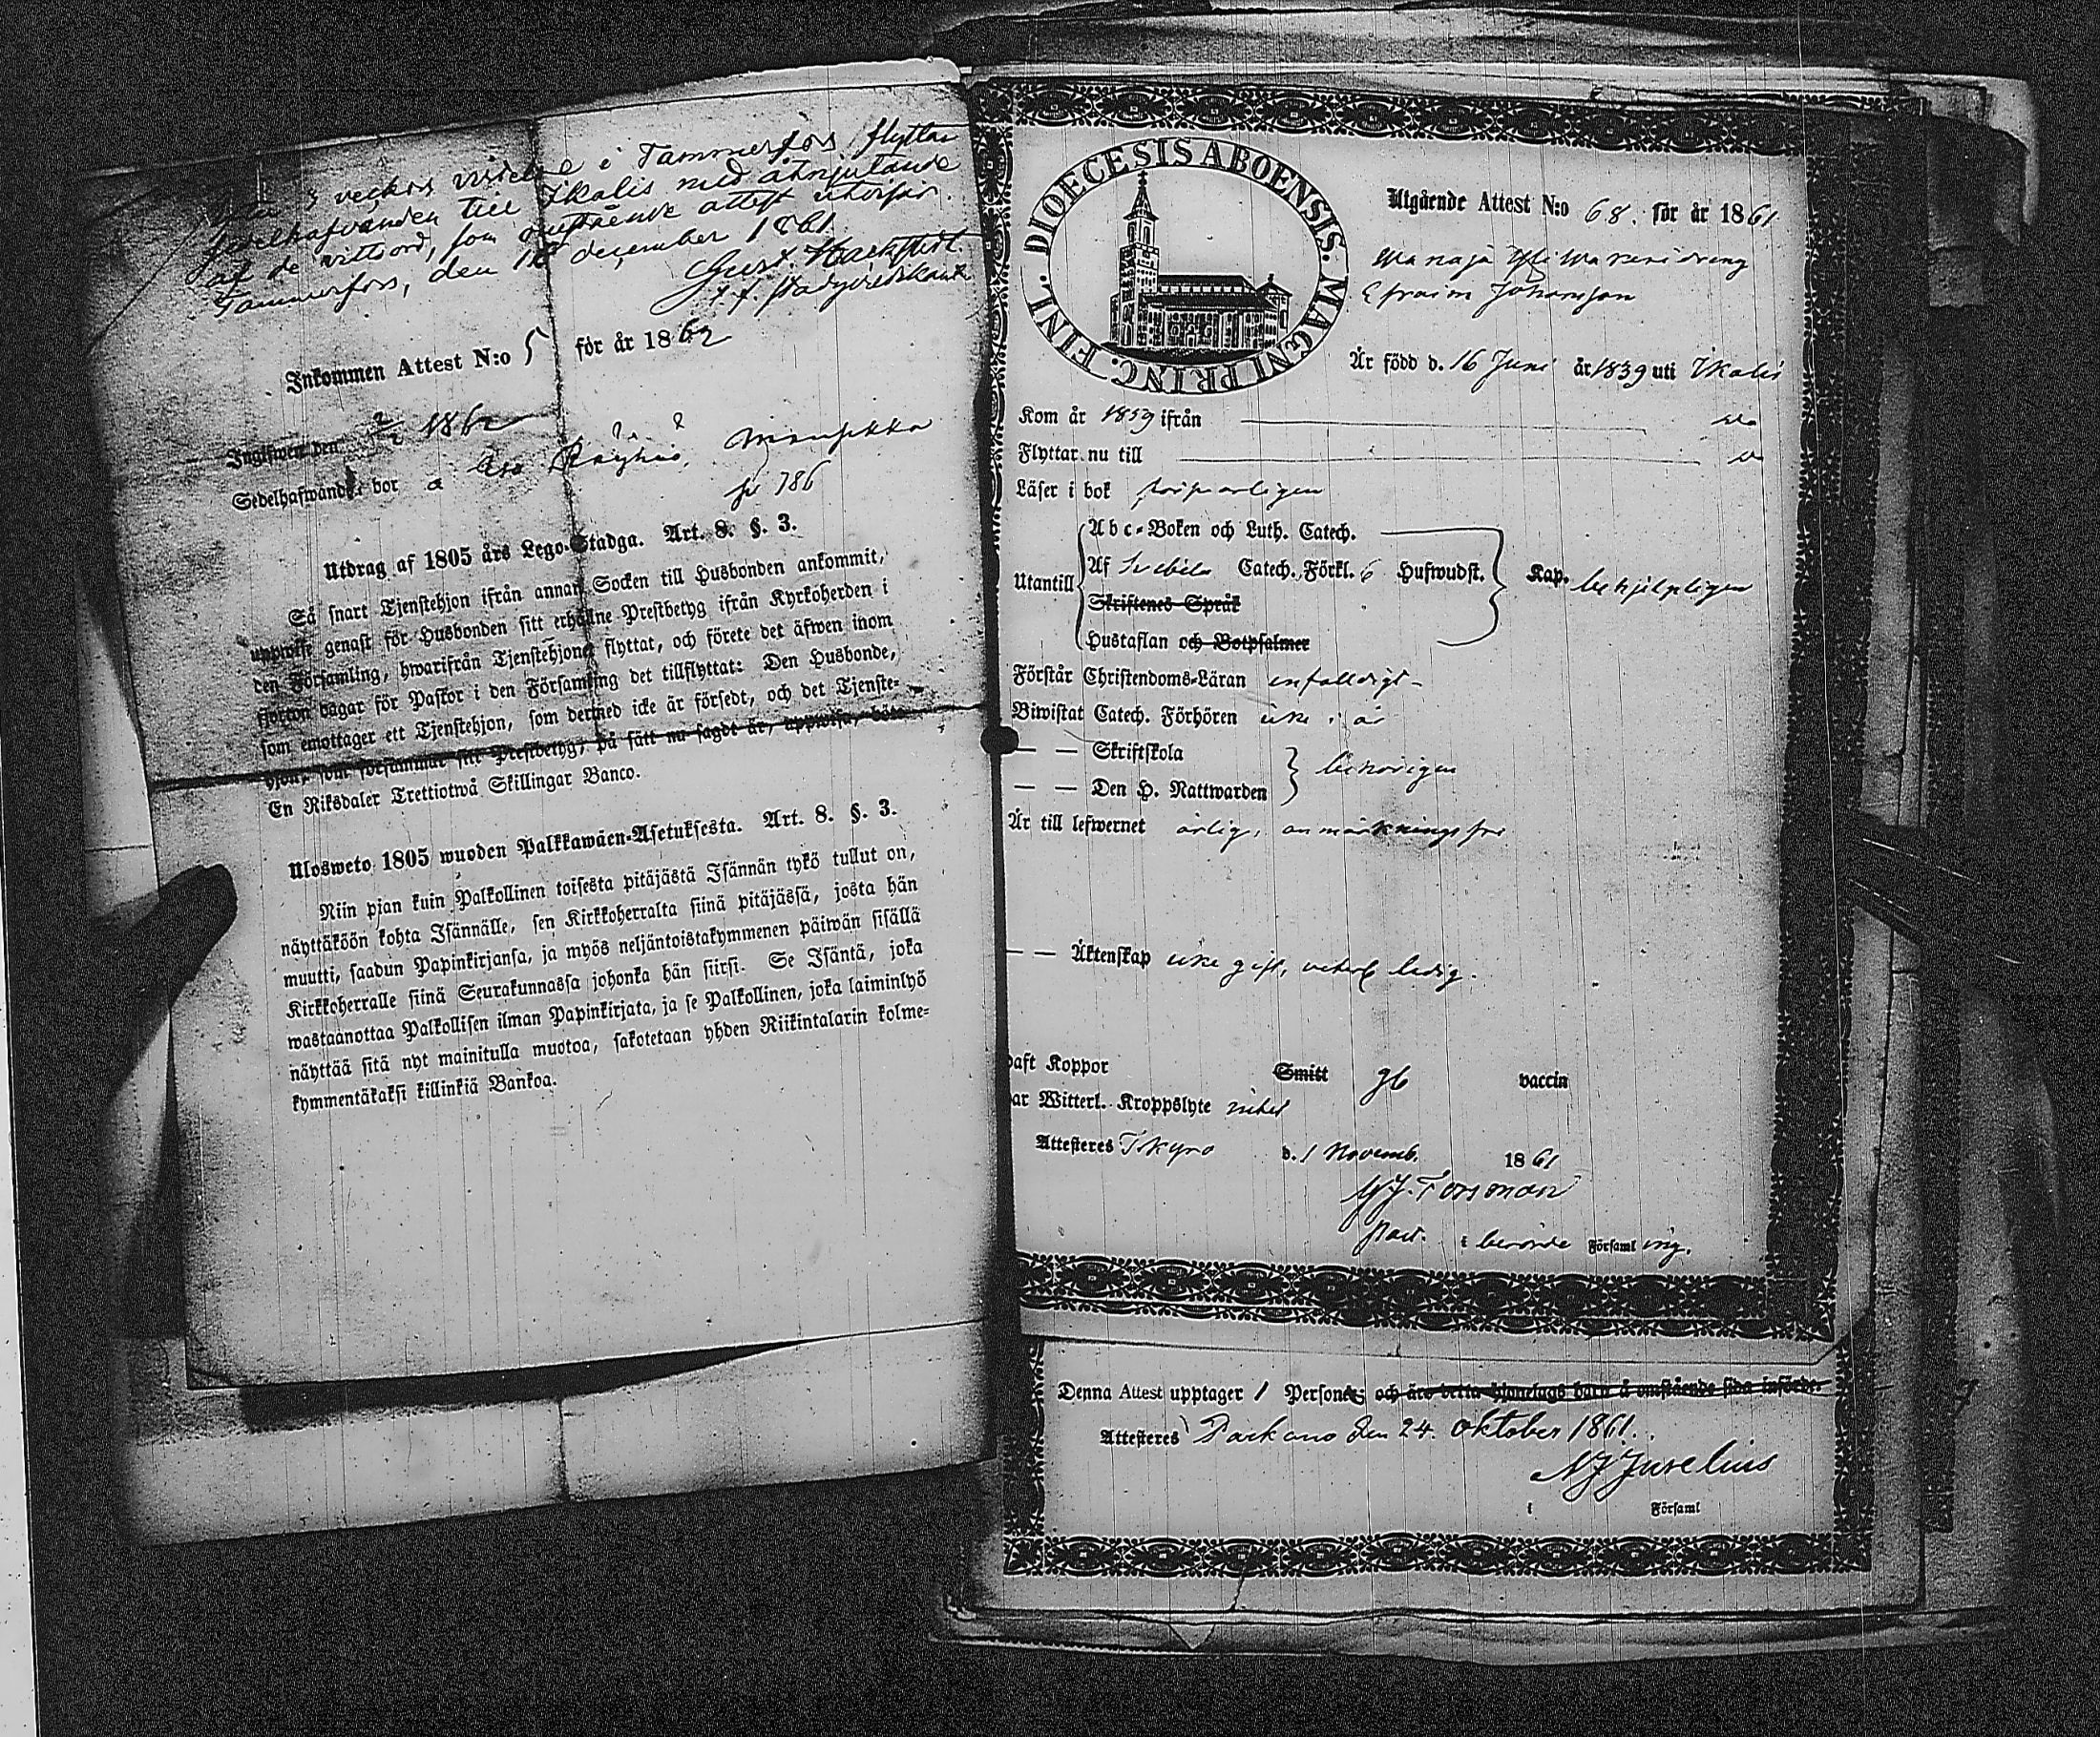 3 veckors vistelse i Tammerfors flyttar
sedelhafvanden till Ikalis med åtnjutande
af de vittsord, som omstående attest utvisar.
Tammerfors, den 18 december 1861.
Gust.
Inkommen Attest N:o 5 för år 1862
Ingifwen den 2/2 1862
Sedelhafwande bor å
Mansikka
786
Utdrag af 1805 års Lego-Stadga. Art. 8. §. 3.
Så snart Tjenstehjon ifrån annan Socken till Husbonden ankommit,
uppwise genast för Husbonden sitt erhållne Prestbetyg ifrån Kyrkoherden i
den Församling, hwarifrån Tjenstehjonet flyttat, och förete det äfwen inom
fjorton dagar för Pastor i den Församling det tillflyttat: Den Husbonde,
som emottager ett Tjenstehjon, som dermed icke är försedt, och det Tjenste-
hjon, som försummar sitt Prestbetyg, på sätt nu sagdt är, uppwisa, böte
En Riksdaler Trettiotwå Skillingar Banco.
Ulosweto 1805 wuoden Palkkawäen-Asetuksesta. Art. 8. §. 3.
Niin pjan kuin Palkollinen toisesta pitäjästä Isännän tykö tullut on,
näyttäköön kohta Isännälle, sen Kirkkoherralta siinä pitäjässä, josta hän
muutti, saadun Papinkirjansa, ja myös neljäntoistakymmenen päiwän sisällä
Kirkkoherralle siinä Seurakunnassa johonka hän siirsi. Se Isäntä, joka
wastaanottaa Palkollisen ilman Papinkirjata, ja se Palkollinen, joka laiminlyö
näyttää sitä nyt mainitulla muotoa, sakotetaan yhden Riikintalarin kolme-
kymmentäkaksi killinkiä Bankoa.
DIOECESIS ABOENSIS. MAGNI PRINC. FINL.
Utgående Attest N:o 68. för år 1861
dräng
Efraim Johansson
Är född d. 16 Juni år 1839 uti Ikalis
Kom år 1859 ifrån
Flyttar nu till
Läser i bok försvarligen
Abc-Boken och Luth. Catech.
Utantill Af Svebilii Catech. Förkl. 6 Hufwudst. Kap. behjelpligen
Skriftenes Språk
Hustaflan och Botpsalmer
Förstår Christendoms-Läran enfaldigt
Biwistat Catech. Förhören icke i år
— — Skriftskola
behörigen
— — Den H. Nattwarden
Är till lefwernet ärlig, anmärkningsfri
— — Äktenskap icke gift, ledig.
Haft Koppor Smitt vaccin
Har Witterl. Kroppslyte intet
Attesteres Ikyro d. 1 Novemb. 1861
Forsman
Past. i berörde Församling.
Denna Attest upptager 1 Person och äro detta hjonelags barn å omstående sida införde.
Attesteres Parkano den 24. Oktober 1861.
NJ Jurelius
i Församl